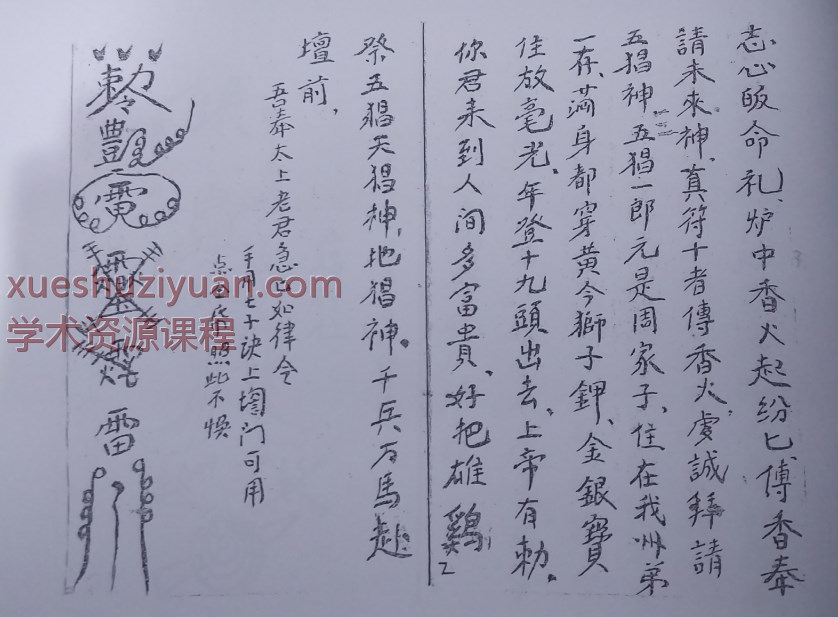 志心皈命礼、炉中香火起纷匕傳香奉
請未來神、真符十者傳香火、虔誠拜請
五猖神、五猖一郎元是周家子、住在我州弟
一存、满身都穿黄今獅子鉀、金銀寶
住放毫光、年登十九頭出去、上帝有勅。
你君来到人间多富貴、好把雄鷄
祭五猖天猖神、地猖神。千兵万馬赴
壇前、
吾奉太上老君急匕如律令
手用七十訣上壇门可用
照此不悞
勅
雷
xueshuziyuan.com
学术资源课程